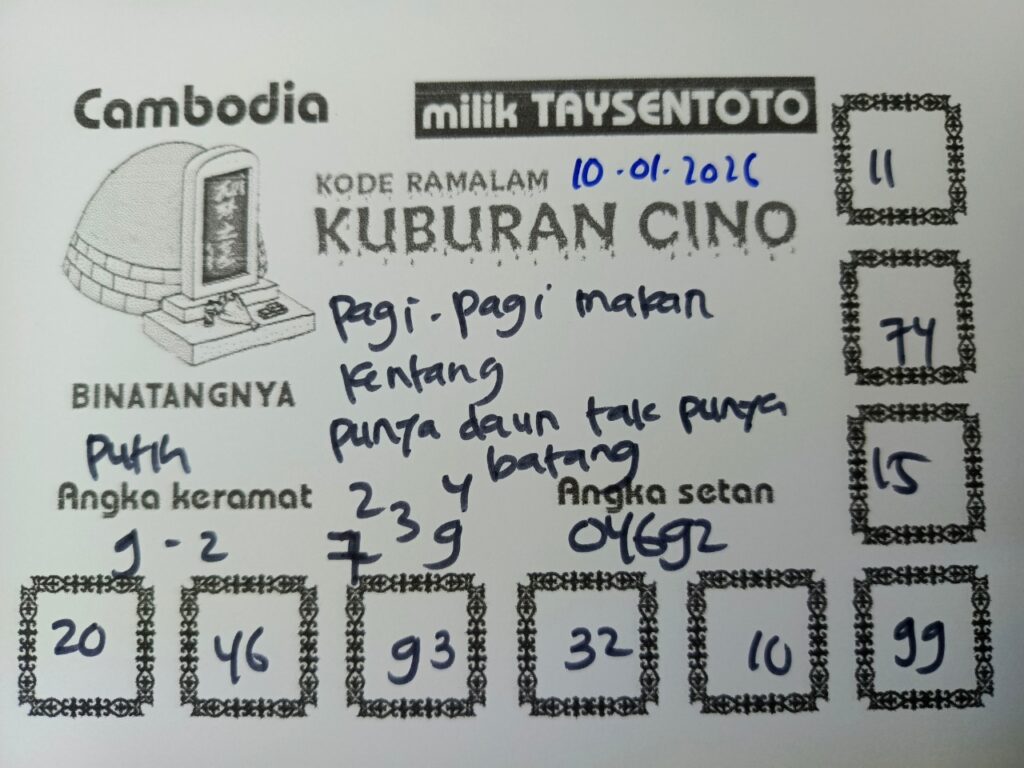 Cambodia
milik TAYSENTOTO
KODE RAMALAM 10.01.2026
KUBURAN CINO
pagi-pagi makan
kentang
punya daun tak punya
batang
BINATANGNYA
putih
Angka keramat
9-2
2 4
7 3 9
Angka setan
04692
11
74
15
20 46 93 32 10 99